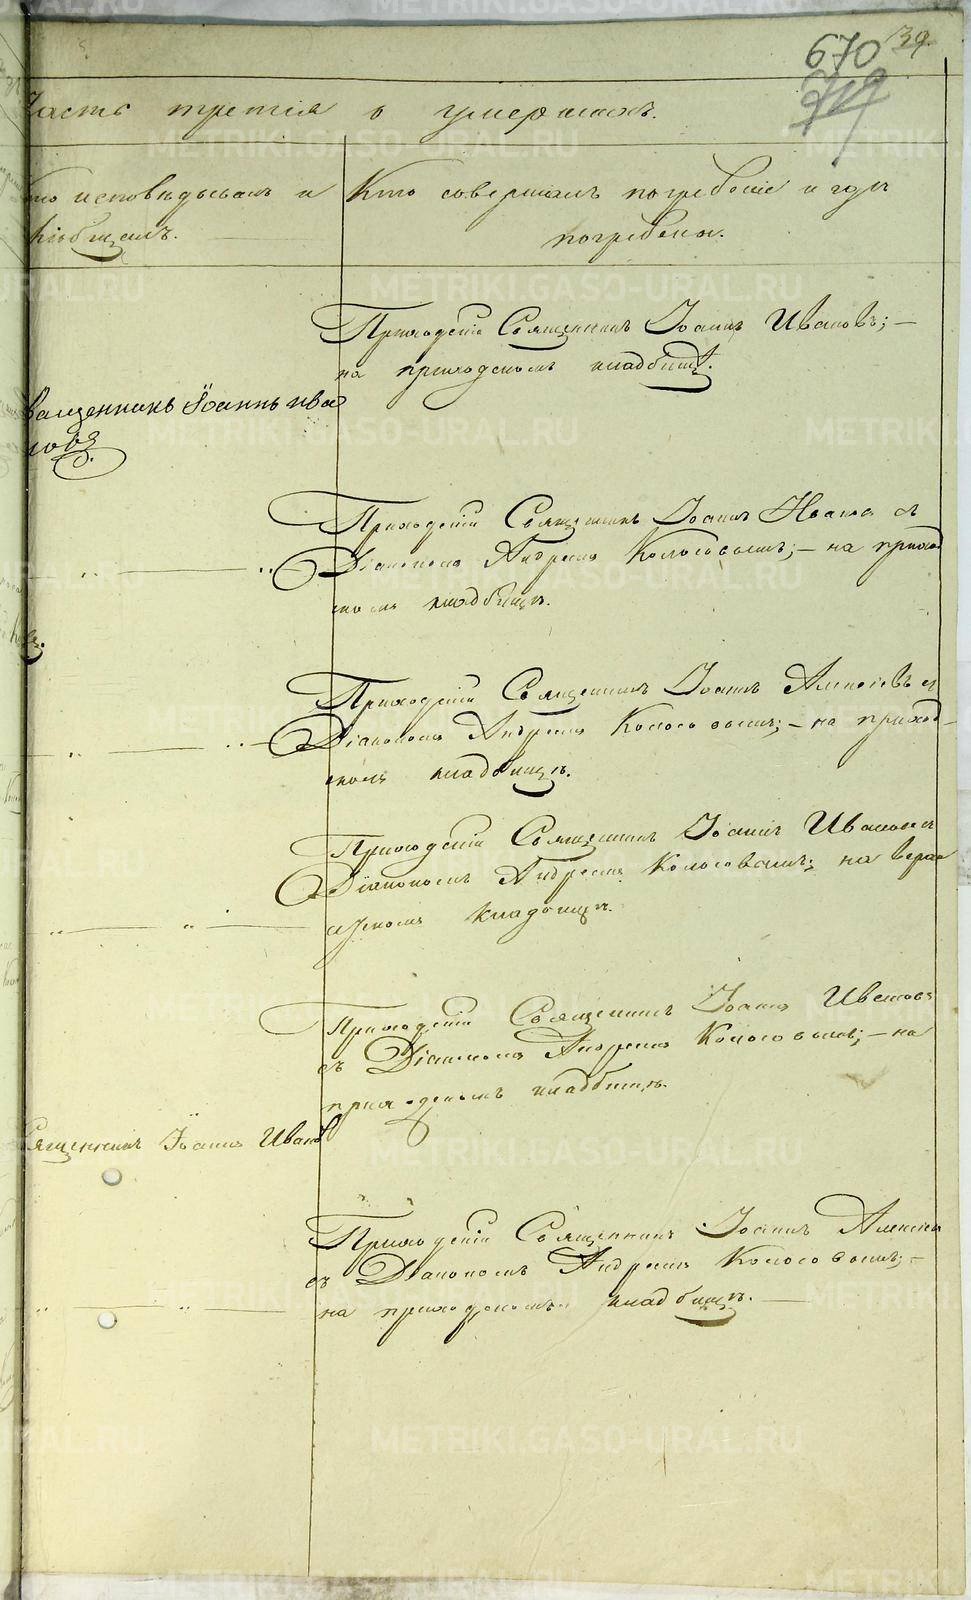 670 39
719
Часть третія о умершихъ.
Кто исповѣдывалъ и
пріобщалъ.
Кто совершалъ погребеніе и гдѣ
погребены.
Приходскій Священникъ Іоаннъ Ивановъ; —
на приходскомъ кладбищѣ.
Священникъ Іоаннъ Ива
новъ
Приходскій Священникъ Іоаннъ съ
Діакономъ Андреемъ Колосовымъ; — на приход
скомъ кладбищѣ.
Приходскій Священникъ Іоаннъ съ
Діакономъ Андреемъ Колосовымъ; — на приход-
скомъ кладбищѣ.
Приходскій Священникъ Іоаннъ Ивановъ съ
Діакономъ Андреемъ Колосовымъ; на
кладбищѣ.
Приходскій Священникъ Іоаннъ Ивановъ
съ Діакономъ Андреемъ Колосовымъ; — на
приходскомъ кладбищѣ.
Священникъ Іоаннъ Ивановъ
Приходскій Священникъ Іоаннъ
съ Діакономъ Андреемъ Колосовымъ; —
на приходскомъ кладбищѣ. —
METRIKI.GASO-URAL.RU